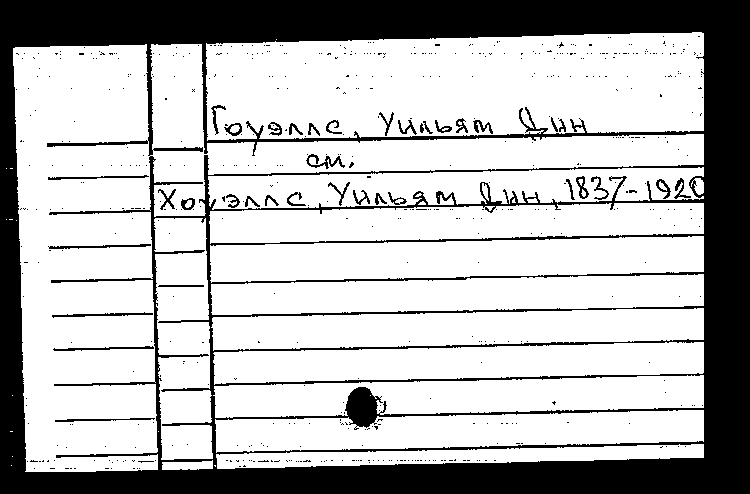 Гоуэллс, Уильям Дин
см.
Хоуэллс, Уильям Дин, 1837-1920